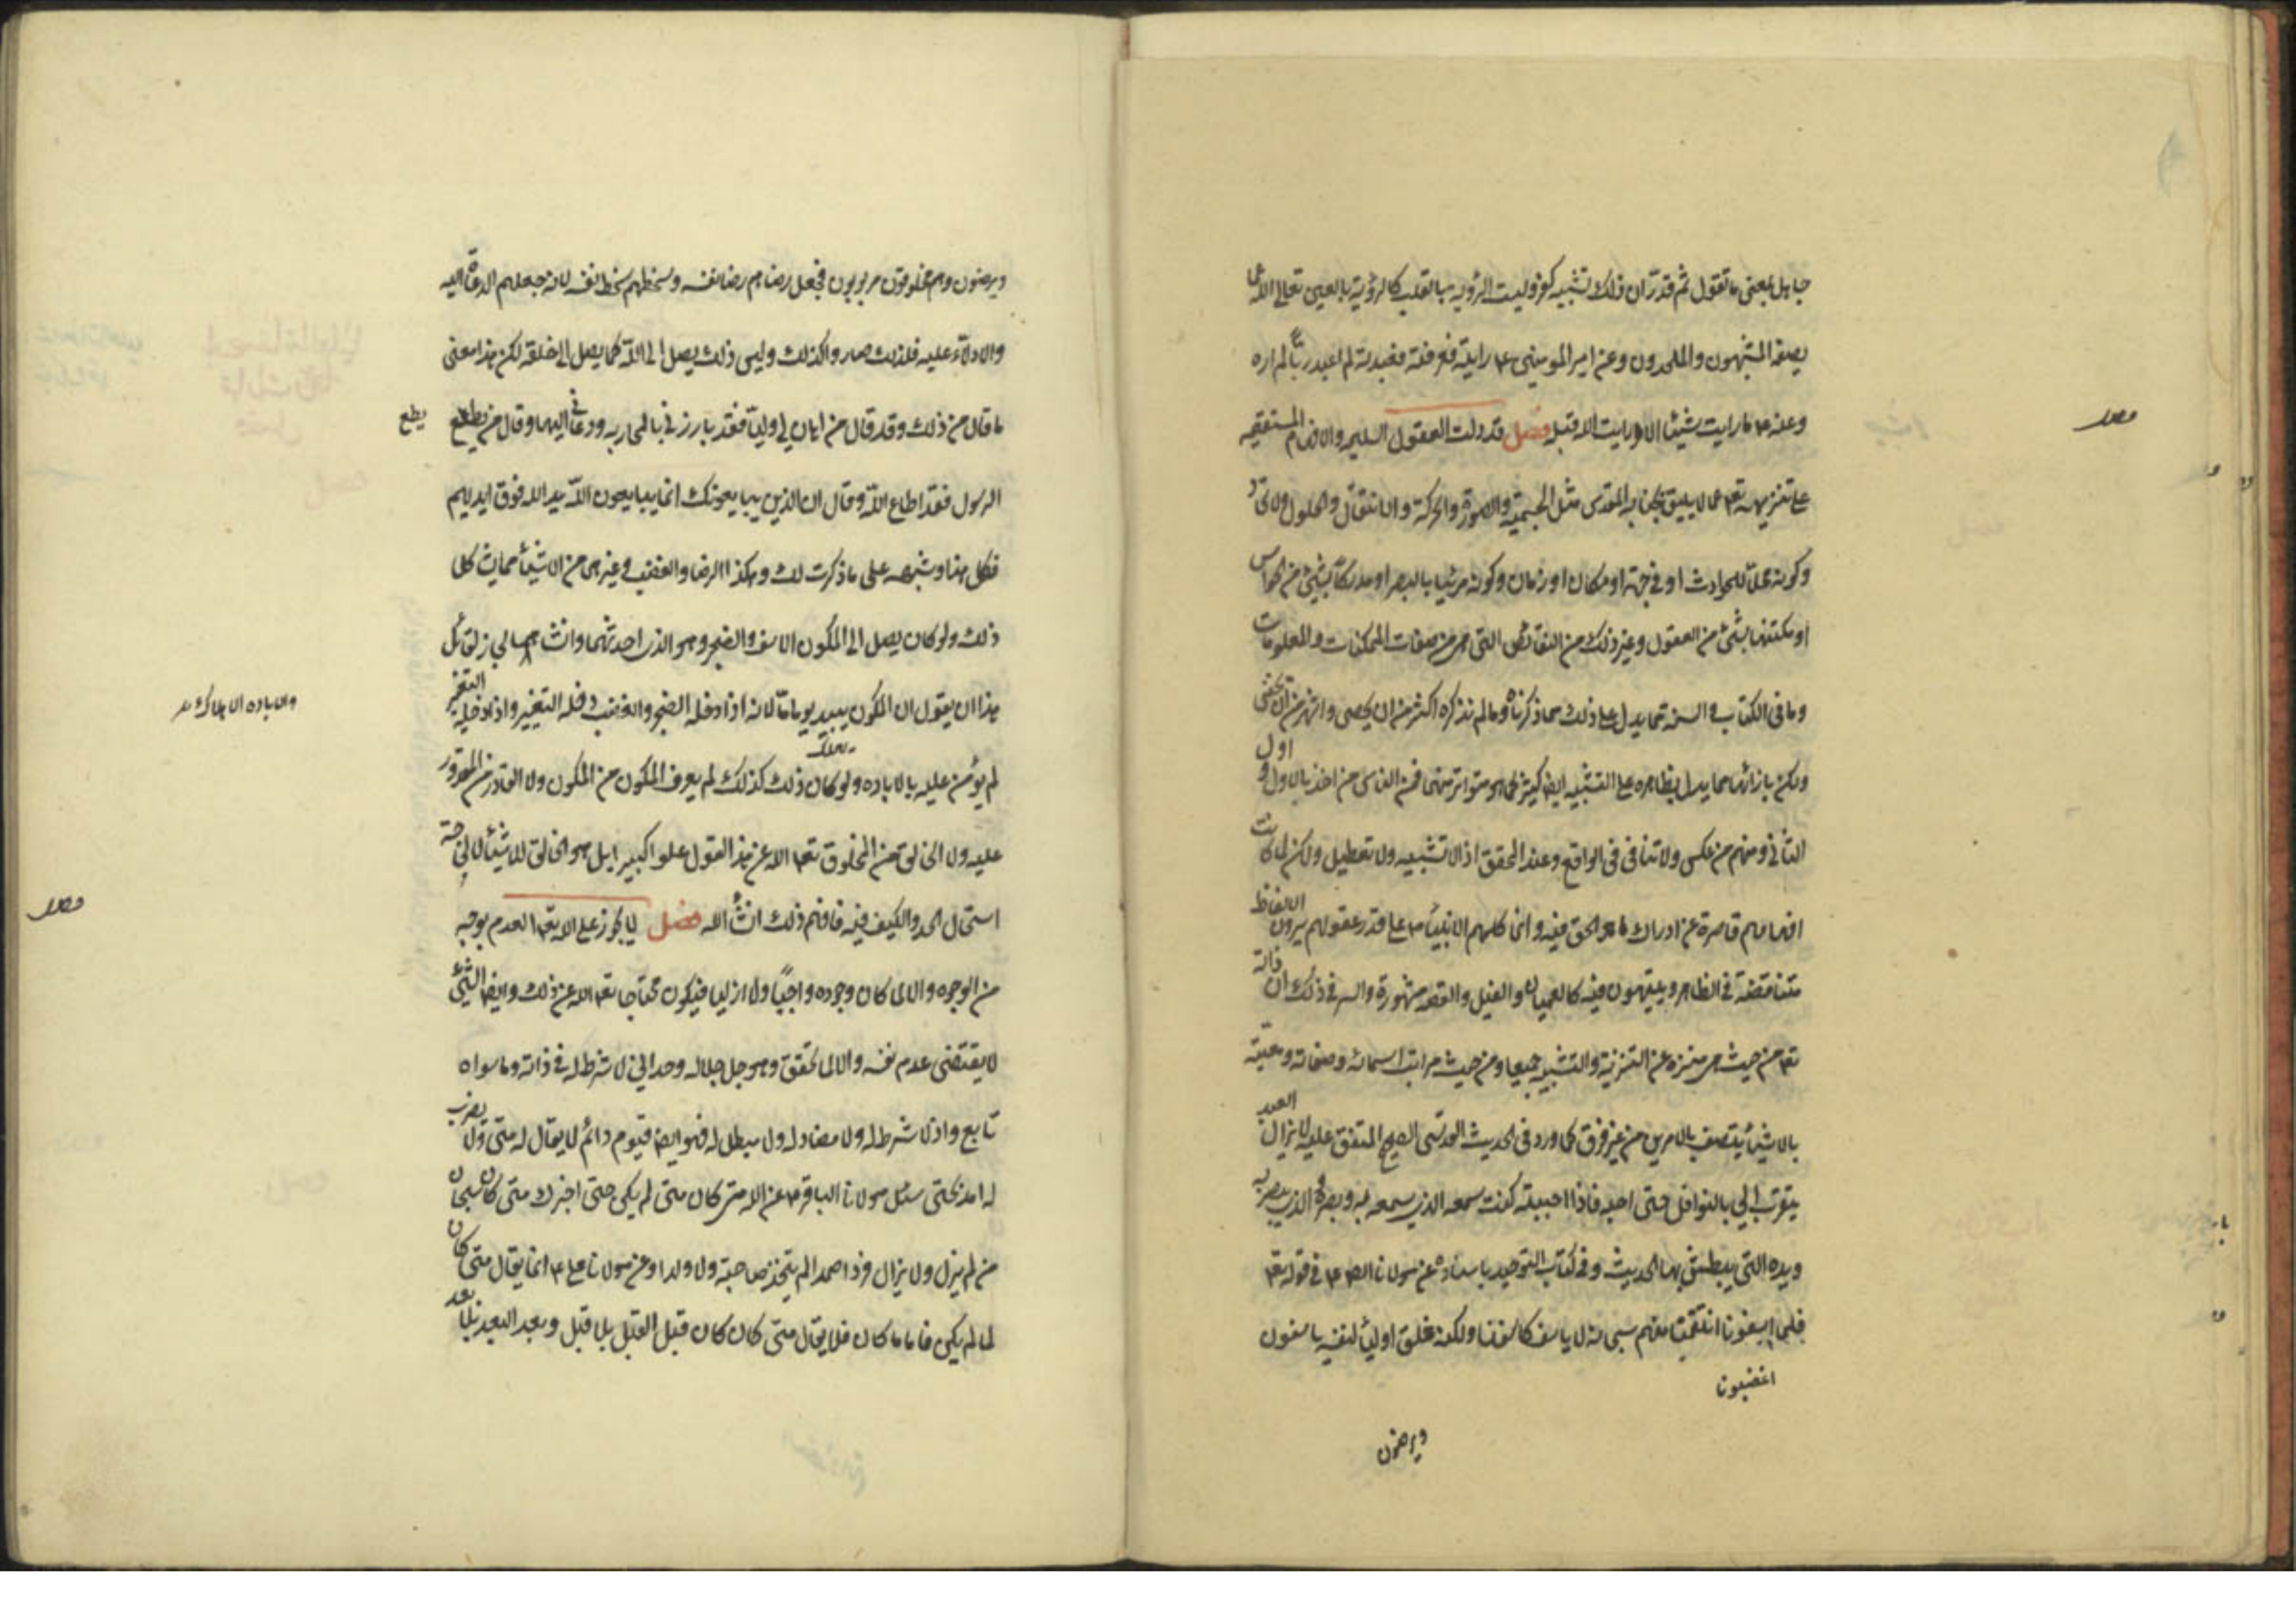 جاهل بمعنى ما تقول ثم قدّر ان ذلك تشبيه كفر وليست الرؤية بالقلب كالرؤية بالعين تعالى الله عما
يصفه المشبهون والملحدون وعن امير المومنين ع رايته فعرفته فعبدته لم اعبد ربا لم اره
وعنه ع ما رايت شيئا الا ورايت الله قبله فصل قد دلت العقول السليمه والافهام المستقيمه
على تنزيهه تعه عما لا يليق بجنابه المقدس مثل الجسمية والصورة والحركة والانتقال والحلول والاتحاد
وكونه محلا للحوادث او في جهة او مكان او زمان وكونه مرئيا بالبصر او مدركا بشيئ من الحواس
او مكتنها بشئ من العقول وغير ذلك من النقائص التي هي من صفات الممكنات والمعلومات
وما في الكتاب والسنة مما يدل على ذلك مما ذكرناه ومما لم نذكره اكثر من ان يحصى واشهر من ان يخفى
ولكن بازائها مما يدل بظاهره على التشبيه ايضا كثير مما هو متواتر فمنها فمن الناس من اخذ بالاول و اول
الثاني ومنهم من عكس ولا تنافى في الواقع وعند المحقق اذ لا تشبيه ولا تعطيل ولكن لما كانت
افهامهم قاصرة عن ادراك ما هو الحق فيه وانما كلمهم الانبياء ع على قدر عقولهم يرون الالفاظ
متناقضة في الظاهر ويعمهون فيه كالعميان والفيل والقصه مشهورة والسر في ذلك ان ذاته
تعه من حيث هي منزه عن التنزيه والتشبيه جميعا ومن حيث مراتب اسمائه وصفاته ومعيته
بالاشياء يتصف بالامرين من غير فرق كما ورد في الحديث القدسى الصحيح المتفق عليه لا يزال العبد
يتقرب الي بالنوافل حتى احبه فاذا احببته كنت سمعه الذي يسمع به وبصره الذي يبصر به
ويده التي يبطش بها الحديث وفي كتاب التوحيد باسناده عن مولانا الصادق ع في قوله تعه
فلما اسفونا انتقمنا منهم سبحانه لا ياسف كاسفنا ولكنه خلق اولياء لنفسه ياسفون
اغضبونا
ويرضون
ويرضون وهم مخلوقون مربوبون فجعل رضاهم رضا نفسه وسخطهم سخط نفسه لانه جعلهم الدعاة اليه
والادلاء عليه فلذلك صاروا كذلك وليس ذلك يصل الى الله كما يصل الى خلقه لكن هذا معنى
ما قال من ذلك وقد قال من اهان لي وليا فقد بارزني بالمحاربه ودعاني اليها وقال من يطع يطع
الرسول فقد اطاع الله وقال ان الذين يبايعونك انما يبايعون الله يد الله فوق ايديهم
فكل هذا وشبهه على ما ذكرت لك وهكذا الرضا والغضب وغيرهما من الاشياء مما يشاكل
ذلك ولو كان يصل الى المكون الاسف والضجر وهو الذي احدثهما وانشاهما لجاز لقائل
هذا ان يقول ان المكون يبيد يوما ما لانه اذا دخله الضجر والغضب دخله التغيير واذا دخله التغير
لم يؤمن عليه بالاباده ولو كان ذلك كذلك لم يعرف المكون من المكون ولا القادر من المقدور
والاباده الاهلاك
عليه ولا الخالق من المخلوق تعه الله عن هذا القول علوا كبيرا بل هو الخالق للاشياء لا لحاجة
استحال الحد والكيف فيه فافهم ذلك انشأ الله فصل لا يجوز على الله تعه العدم بوجه
من الوجوه والا لما كان وجوده واجبا ولا ازليا فيكون محتاجا تعه الله عن ذلك وايضا الشئ
لا يقتضى عدم نفسه والا لما تحقق وهو جل جلاله وحداني لا شرط له في ذاته وما سواه
تابع واذ لا شرط له ولا مضاد له ولا مبطل له فهو ايضا قيوم دائم لا يقال له متى ولا يضرب
له امد بحتى سئل مولانا الباقر ع عن الله متى كان متى لم يكن حتى اخبرك متى كان سبحان
من لم يزل ولا يزال فردا صمدا لم يتخذ صاحبة ولا ولدا وعن مولانا على ع انما يقال متى كان
لما لم يكن فاما ما كان فلا يقال متى كان كان قبل القبل بلا قبل وبعد البعد بلا بعد